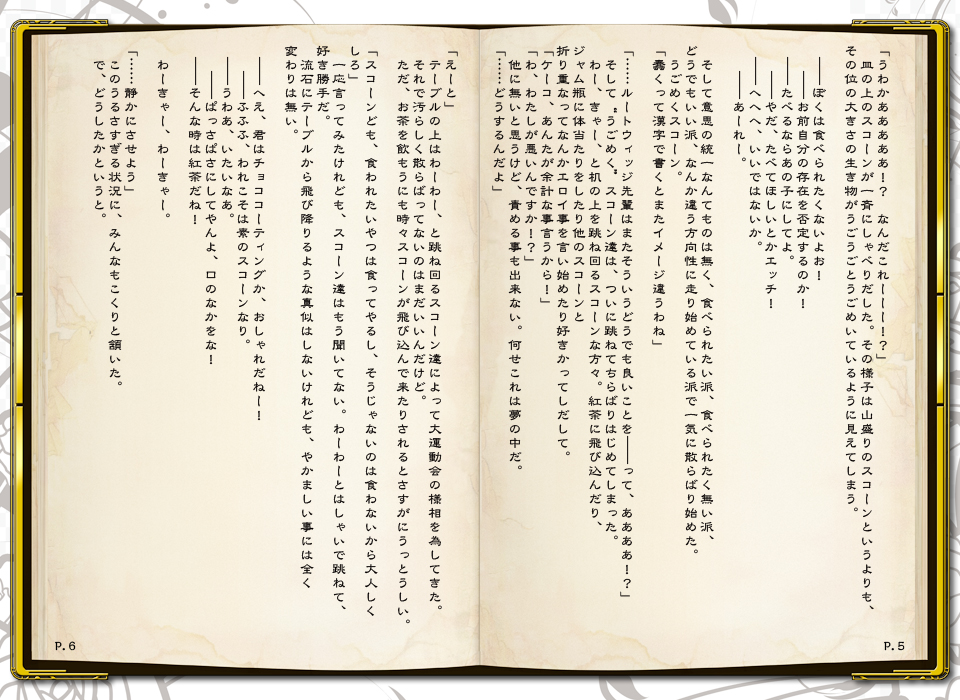 「うわかああああぁ！？　なんだこれーーーー！？」
　皿の上のスコーンが一斉にしゃべりだした。その様子は山盛りのスコーンというよりも、
その位の大きさの生き物がうごうごとうごめいているように見えてしまう。
――ぼくは食べられたくないよお！
――お前自分の存在を否定するのか！
――たべるならあの子にしてよ。
――やだ、たべてほしいとかエッチ！
――へへへ、いいではないか。
――あーれー。
　そして意思の統一なんてものは無く、食べられたい派、食べられたく無い派、
どうでもいい派、なんか違う方向性に走り始めている派で一気に散らばり始めた。
　うごめくスコーン。
「蠢くって漢字で書くとまたイメージ違うわね」
「……ルートウィッジ先輩はまたそういうどうでも良いことを――って、ああああ！？」
　そして〝うごめく〟スコーン達は、ついに跳ねてちらばりはじめてしまった。
　わー、きゃー、と机の上を跳ね回るスコーンな方々。紅茶に飛び込んだり、
ジャム瓶に体当たりをしたり他のスコーンと
折り重なってなんかエロイ事を言い始めたり好きかってしだして。
「ケーコ、あんたが余計な事言うから！」
「わ、わたしが悪いんですか！？」
　他に無いと思うけど、責める事も出来ない。何せこれは夢の中だ。
「……どうするんだよ」
P.5
「えーと」
　テーブルの上はわーわー、と跳ね回るスコーン達によって大運動会の様相を為してきた。
　それで汚らしく散らばってないのはまだいいんだけど。
　ただ、お茶を飲もうにも時々スコーンが飛び込んで来たりされるとさすがにうっとうしい。
「スコーンども、食われたいやつは食ってやるし、そうじゃないのは食わないから大人しく
しろ」
　一応言ってみたけれども、スコーン達はもう聞いてない。わーわーとはしゃいで跳ねて、
好き勝手だ。
　流石にテーブルから飛び降りるような真似はしないけれども、やかましい事には全く
変わりは無い。
――へえ、君はチョココーティングか、おしゃれだねー！
――ふふふ、われこそは素のスコーンなり。
――うわあ、いたいなあ。
――ぱっさぱさにしてやんよ、口のなかをな！
――そんな時は紅茶だね！
　わーきゃー、わーきゃー。
「……静かにさせよう」
　このうるさすぎる状況に、みんなもこくりと頷いた。
　で、どうしたかというと。
P.6